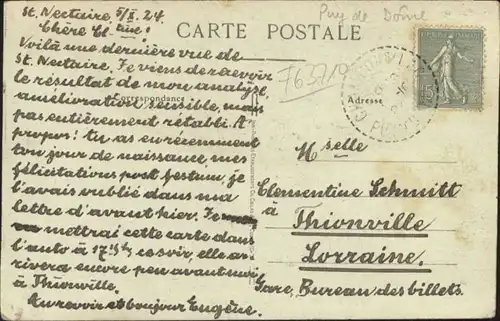 St. Nectaire, 5/X. 24.
CARTE POSTALE
Puy de Dôme
Chère Cl-tine!
Voilà une dernière vue de
St. Nectaire. Je viens de recevoir
le résultat de mon analyse
amélioration sensible, mais
pas entièrement rétabli. A
propos! tu as eu récemment
ton jour de naissance, mes
félicitations post festum, je
l'avais oublié dans ma
lettre d'avant hier. Je
mettrai cette carte dans
l'auto à 17h ce soir, elle ar-
rivera encore peu avant moi
à Thionville.
Au revoir et bonjour Eugène.
Correspondance
Adresse
F63710
15
Mselle
Clementine Schmitt
à
Thionville
Lorraine.
Gare, Bureau des billets.